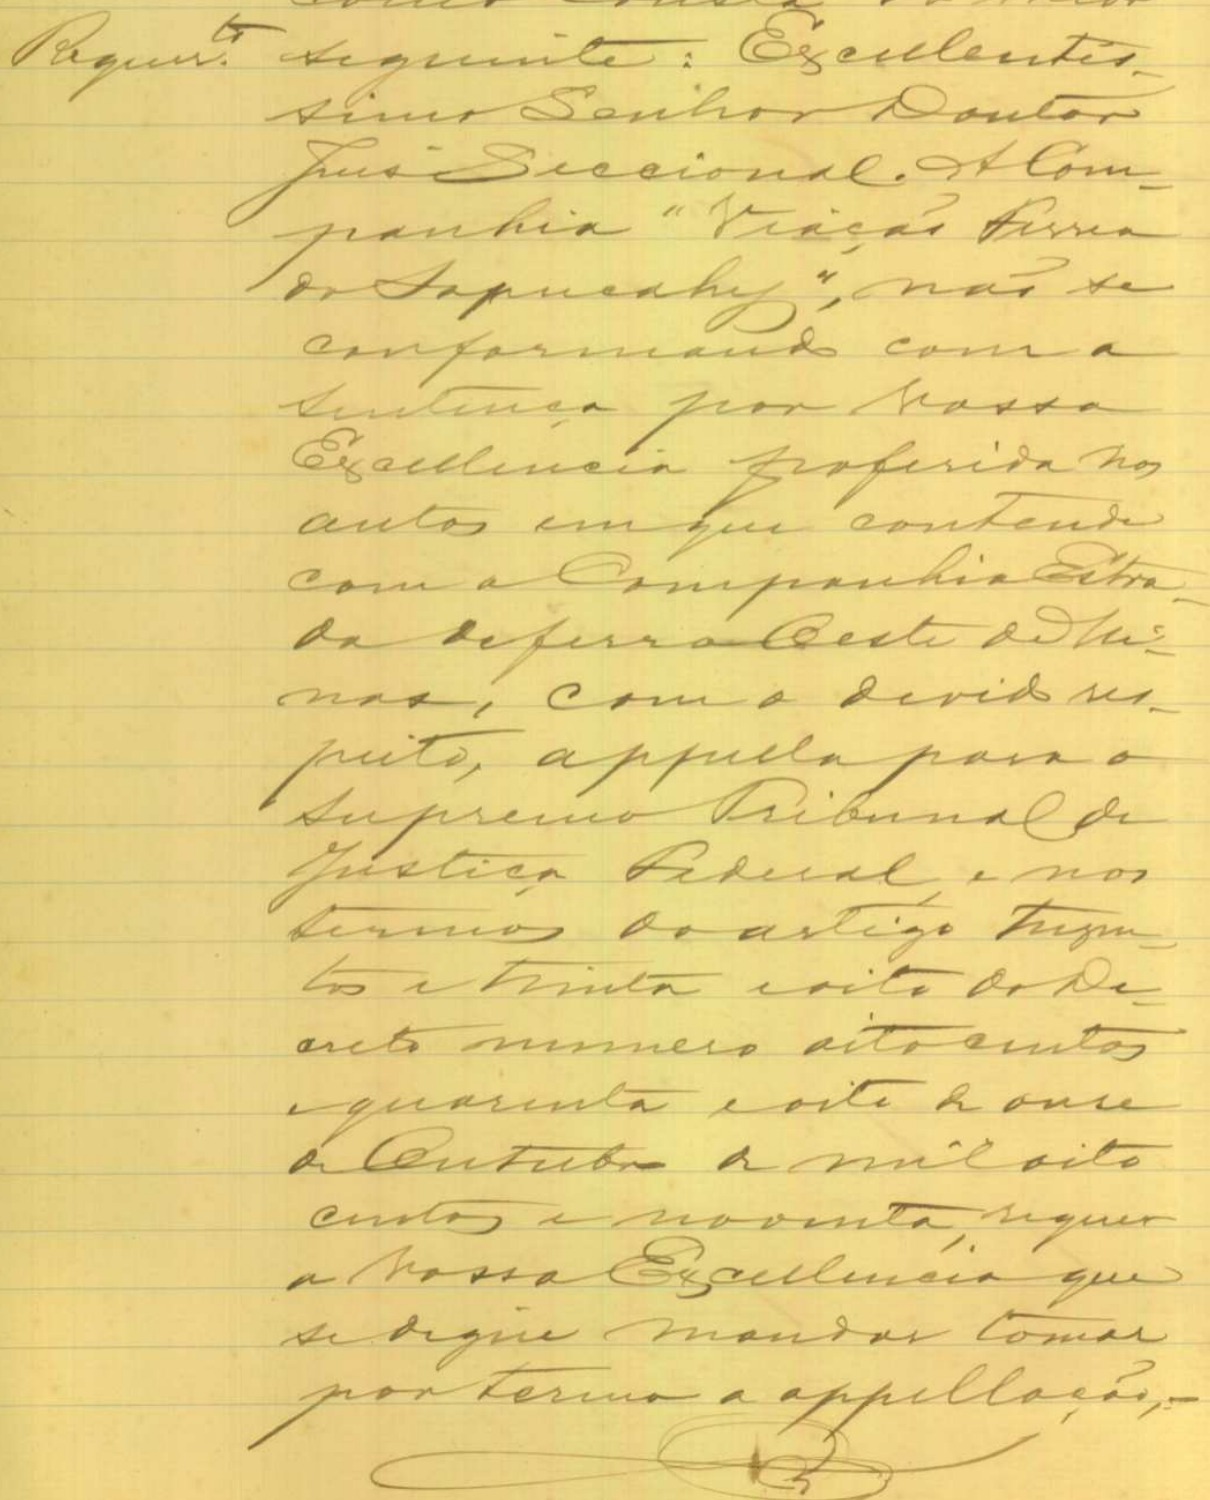 como consta do theor
Requer.to seguinte: Excellentis-
simo Senhor Doutor
Juis Seccional. A Com-
panhia "Viação Ferrea
do Sapucahy", não se
conformando com a
sentença por Vossa
Excellencia proferida nos
autos em que contende
com a Companhia Estra-
da de ferro Oeste de Mi-
nas, com o devido res-
peito, appella para o
Supremo Tribunal de
Justiça Federal, e nos
termos do artigo trezen-
tos e trinta e oito do De-
creto numero oitocentos
e quarenta e oito de onse
de Outubro de mil oito
centos e noventa, requer
a Vossa Excellencia que
se digne mandar tomar
por termo a appellação,-